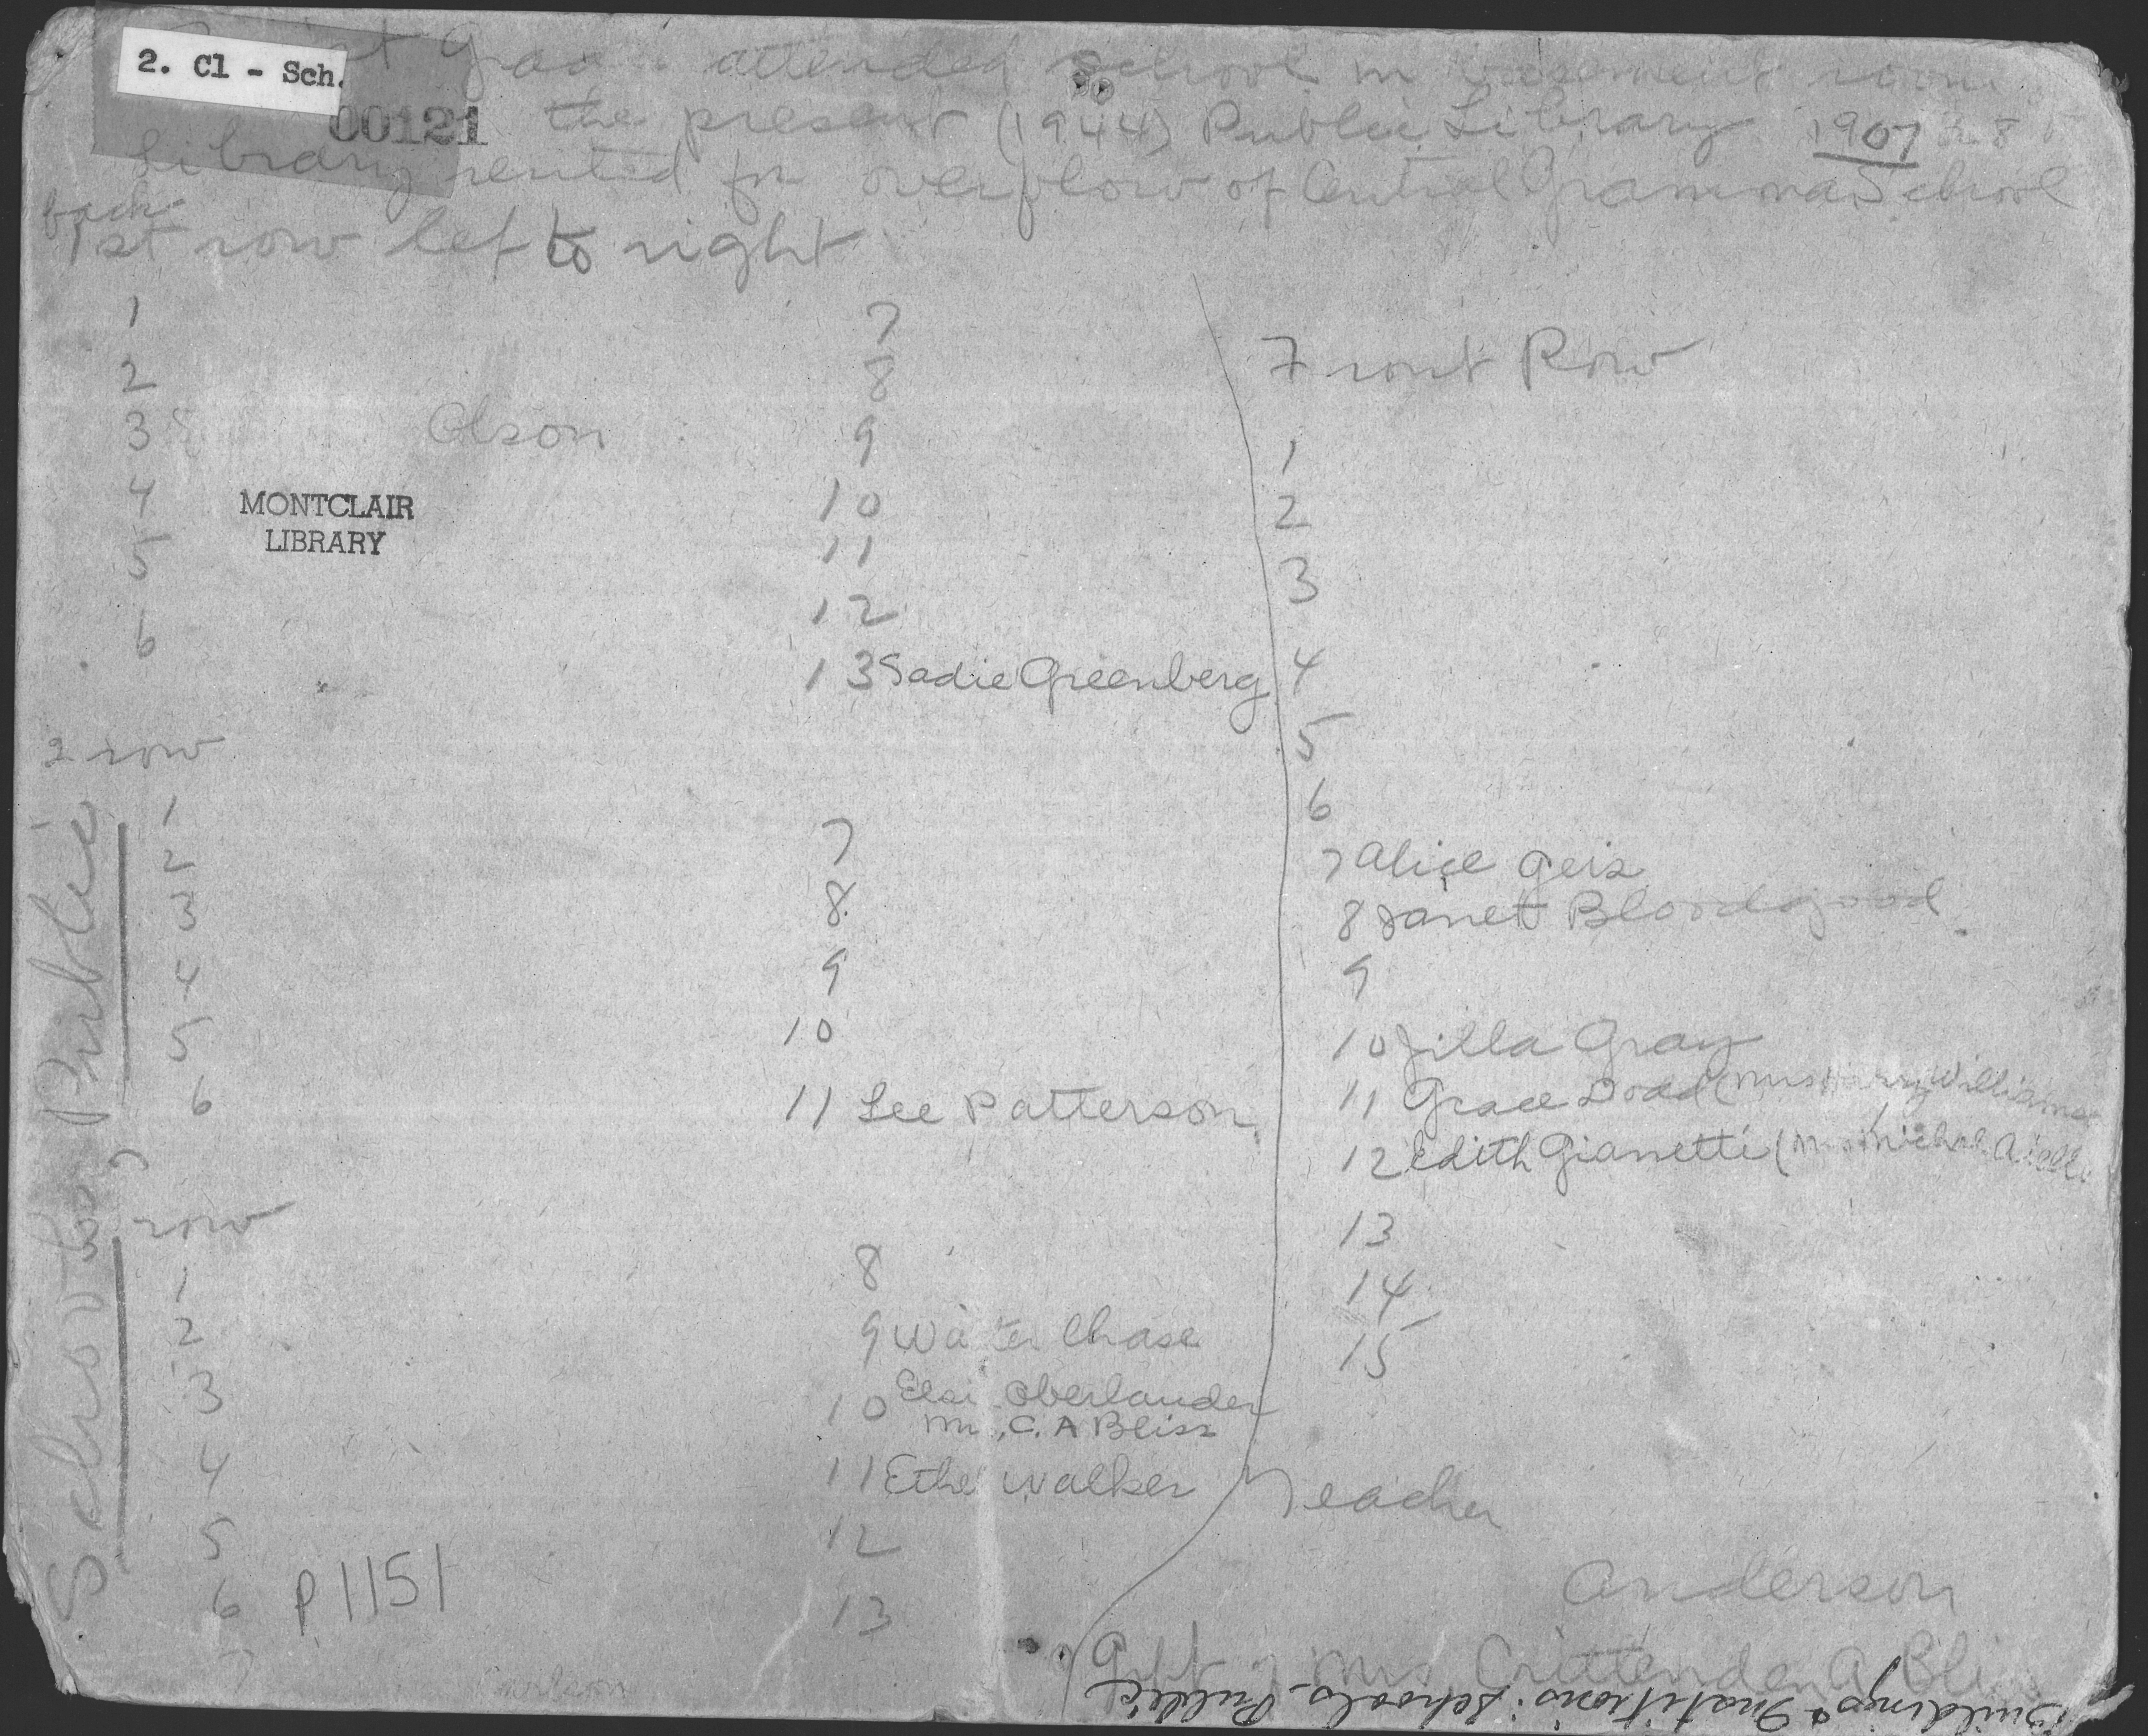 2. Cl - Sch.
00121
attended school in basement room
the present (1944) Public Library 1907
Library rented for overflow of Central Grammar School
back
1st row left to right
1
2
3 Olson
4
5
6
MONTCLAIR
LIBRARY
7
8
9
10
11
12
13 Sadie Greenberg
2 row
1
2
3
4
5
6
7
8
9
10
11 Lee Patterson
row
1
2
3
4
5
6
7 Carlson
8
9 Walter Chase
10 Elsie Oberlander
Mrs. C. A Bliss
11 Ethel Walker
12
13
Front Row
1
2
3
4
5
6
7 Alice Geis
8 Janet Bloodgood
9
10 Zilla Gray
11 Grace Dodd (Mrs Harry Williams
12 Edith Giannetti (Mrs Michael
13
14
15
Teacher
Anderson
Gift of Mrs Crittenden A Bliss
Buildings & Institutions: Schools - Public
P1151
Schools Public